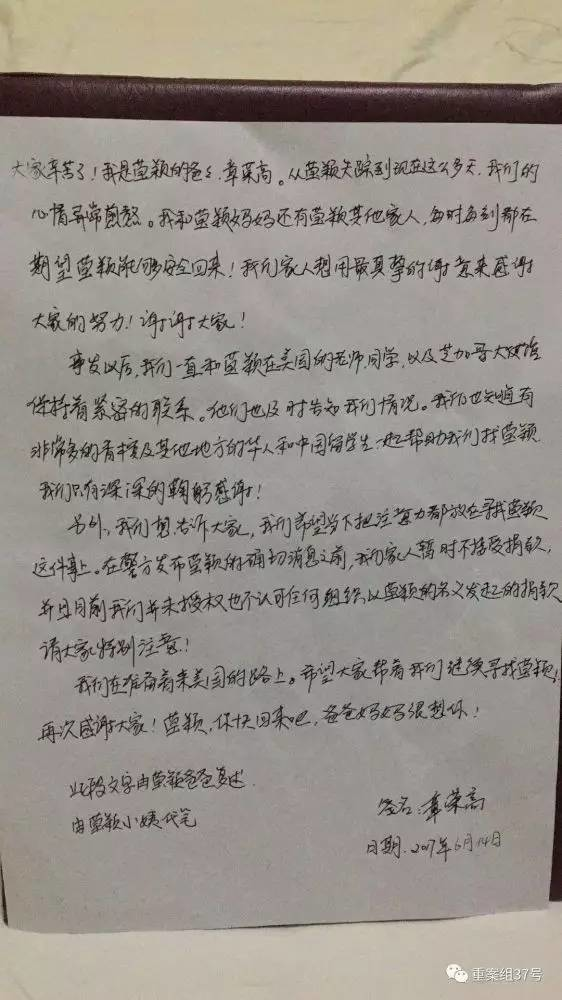 大家辛苦了！我是莹颖的爸爸章荣高。从莹颖失踪到现在这么多天，我们的
心情异常煎熬。我和莹颖妈妈还有莹颖其他家人，每时每刻都在
期望莹颖能够安全回来！我们家人想用最真挚的谢意来感谢
大家的努力！谢谢大家！
事发以后，我们一直和莹颖在美国的老师，同学，以及芝加哥大使馆
保持着紧密的联系。他们也及时告知我们情况。我们也知道有
非常多的香槟及其他地方的华人和中国留学生一起帮助我们找莹颖
我们只有深深的鞠躬感谢！
另外，我们想告诉大家，我们希望当下把注意力都放在寻找莹颖
这件事上。在警方发布莹颖的确切消息之前，我们家人暂时不接受捐款，
并且目前我们并未授权也不认可任何组织以莹颖的名义发起的捐款
请大家特别注意！
我们在准备着来美国的路上。希望大家帮着我们继续寻找莹颖！
再次感谢大家！莹颖，你快回来吧，爸爸妈妈很想你！
此段文字由莹颖爸爸复述
由莹颖小姨代笔
签名：章荣高
日期：2017年6月14日
重案组37号